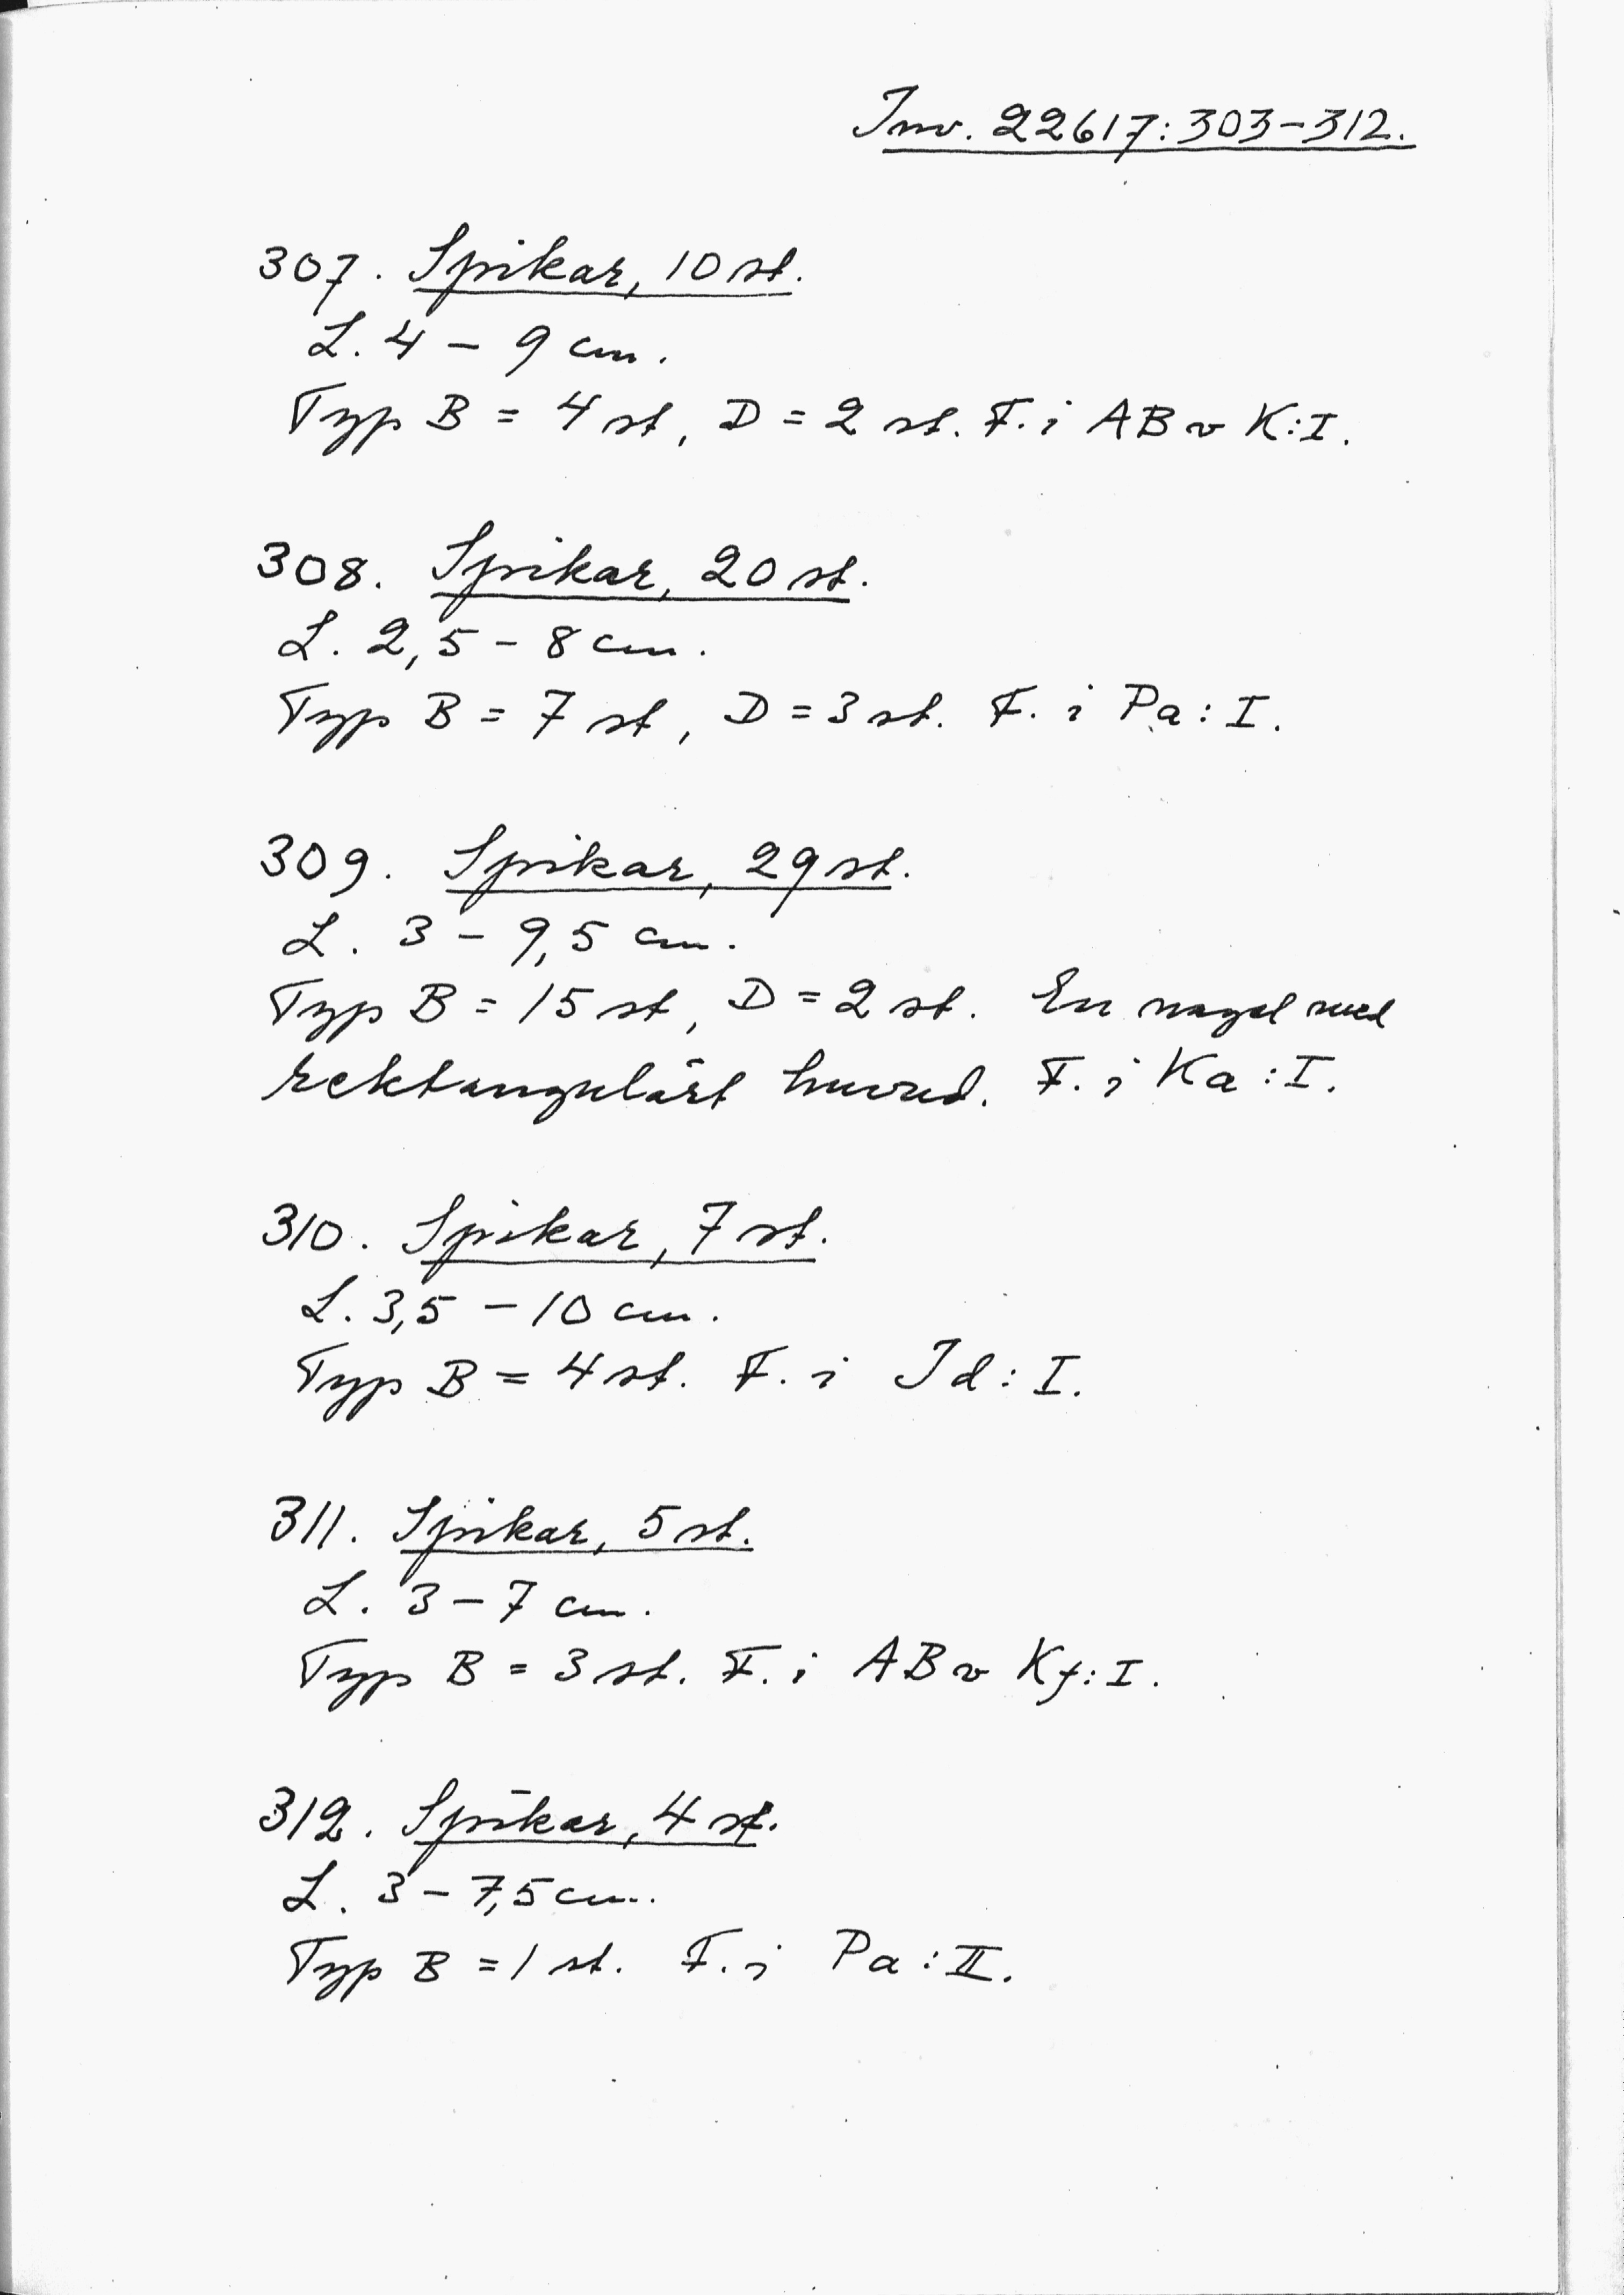 Inv. 22617:303-312.
307. Spikar, 10 st.
L. 4 - 9 cm.
Typ B = 4 st, D = 2 st. F. i AB v K:I.
308. Spikar, 20 st.
L. 2,5 - 8 cm.
Typ B = 7 st, D = 3 st. F. i Pa : I.
309. Spikar, 29 st.
L. 3 - 9,5 cm.
Typ B = 15 st, D = 2 st. En nagel med
rektangulärt huvud. F. i Ka : I.
310. Spikar, 7 st.
L. 3,5 - 10 cm.
Typ B = 4 st. F. i Id : I.
311. Spikar, 5 st.
L. 3 - 7 cm.
Typ B = 3 st. F. i AB v Kf : I.
312. Spikar, 4 st.
L. 3 - 7,5 cm.
Typ B = 1 st. F. i Pa : II.